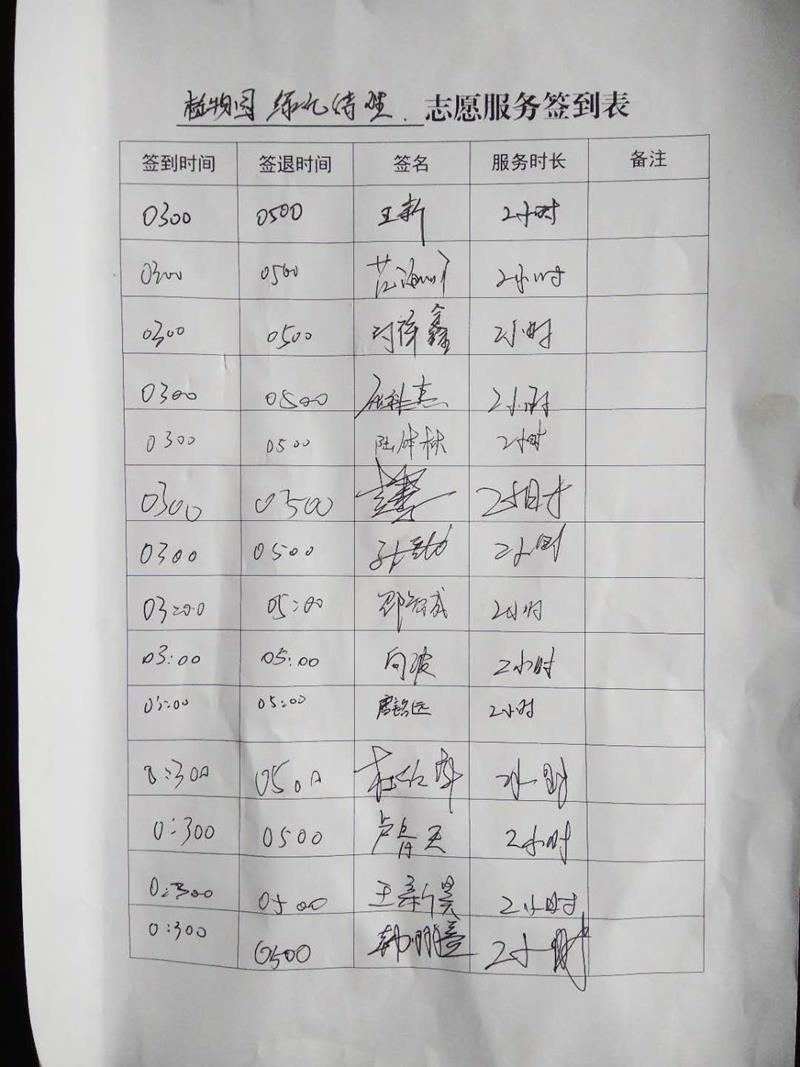 植物园 绿化 志愿服务签到表
签到时间 签退时间 签名 服务时长 备注
0300 0500 王新 2小时
0300 0500 2小时
0300 0500 鑫 2小时
0300 0500 2小时
0300 0500 陆 林 2小时
0300 0500 2小时
0300 0500 2小时
03:00 05:00 邵智成 2小时
03:00 05:00 向波 2小时
03:00 05:00 唐铭远 2小时
0:300 0500 2小时
0:300 0500 卢 天 2小时
0:300 0500 王新昊 2小时
0:300 0500 韩鹏鑫 2小时